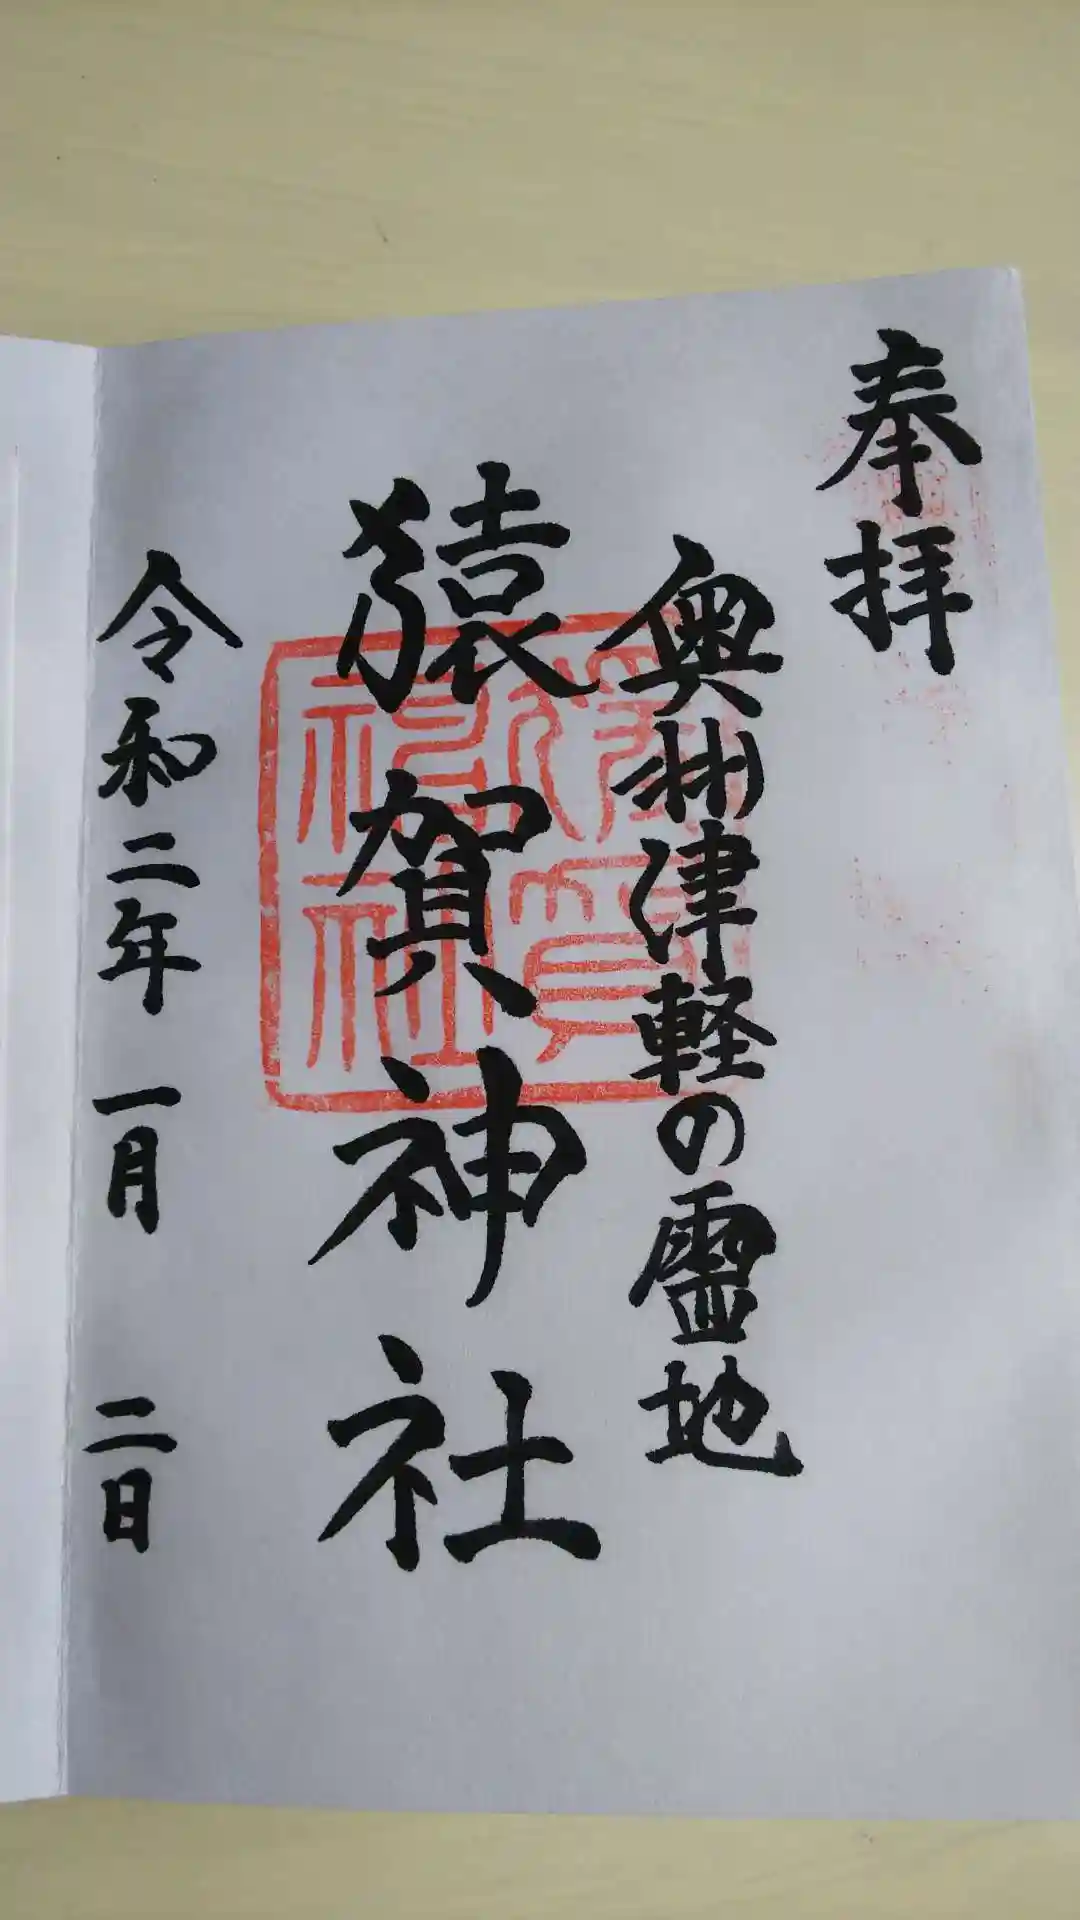 奉拝
奥州津軽の霊地
猿賀神社
令和二年一月二日
猿賀
神社